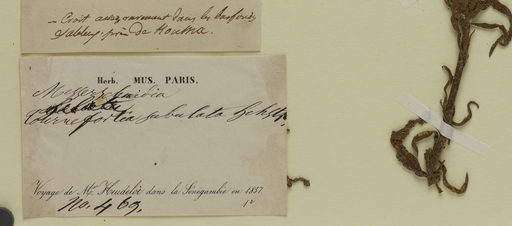 — Croit assez rarement dans les basfonds
Sableux près de Houma.
Herb. MUS. PARIS.
Messerschmidia
Tournefortia subulata Hchst.
Voyage de Mr Heudelot dans la Sénégambie en 1837
No. 469.